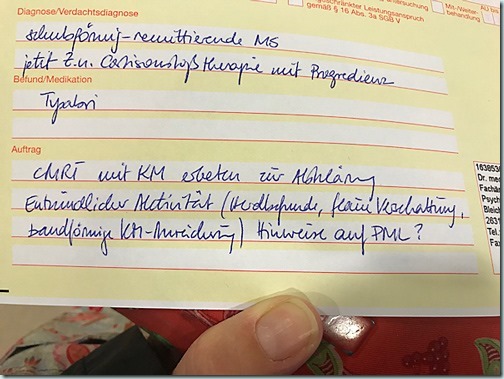 Mit-/Weiter-
behandlung
AU bis
eingeschränkter Leistungsanspruch
gemäß § 16 Abs. 3a SGB V
Diagnose/Verdachtsdiagnose
schubförmig-remittierende MS
jetzt Z.n. Cortisonstoßtherapie mit Pregredienz
Befund/Medikation
Tysabri
Auftrag
cMRT mit KM erbeten zur Abklärung
Entzündlicher Aktivität (Herdbefunde, flaue Verschattung,
bandförmige KM-Anreicherung) Hinweise auf PML?
Dr. med
Fachä
Psych
Bleich
Tel.
Fax